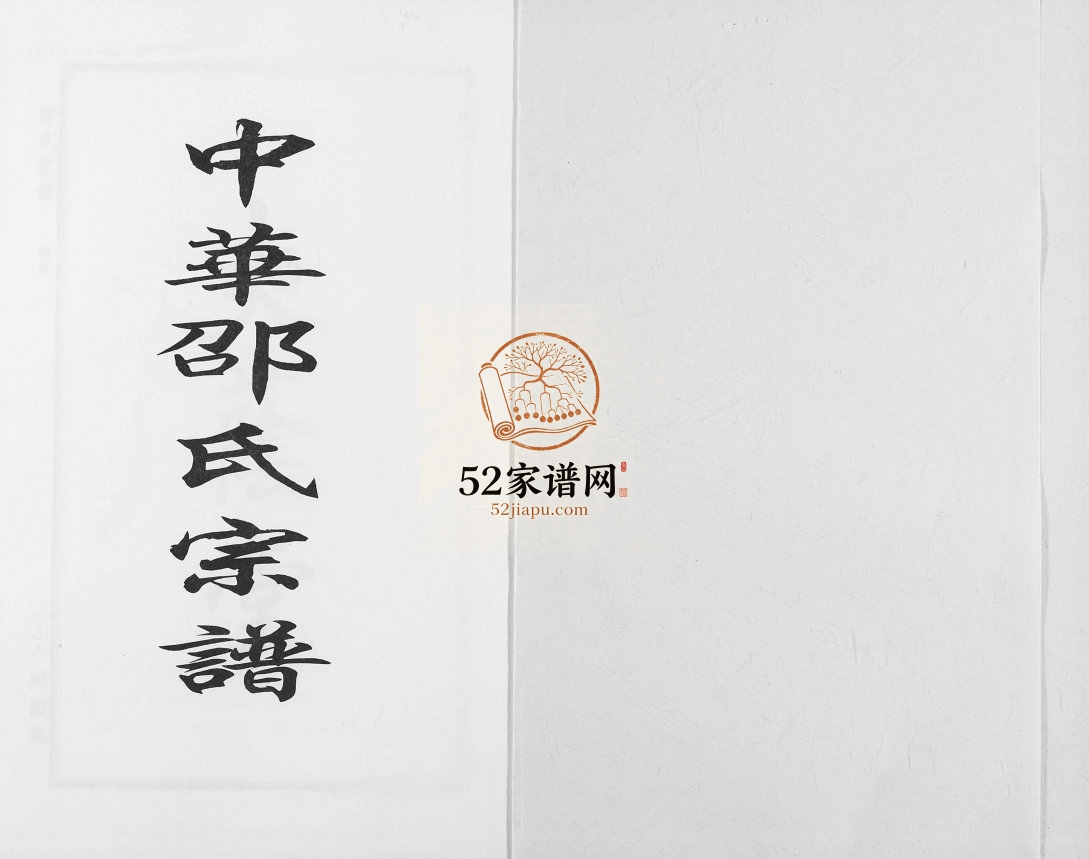 中華邵氏宗譜
52家谱网
52jiapu.com